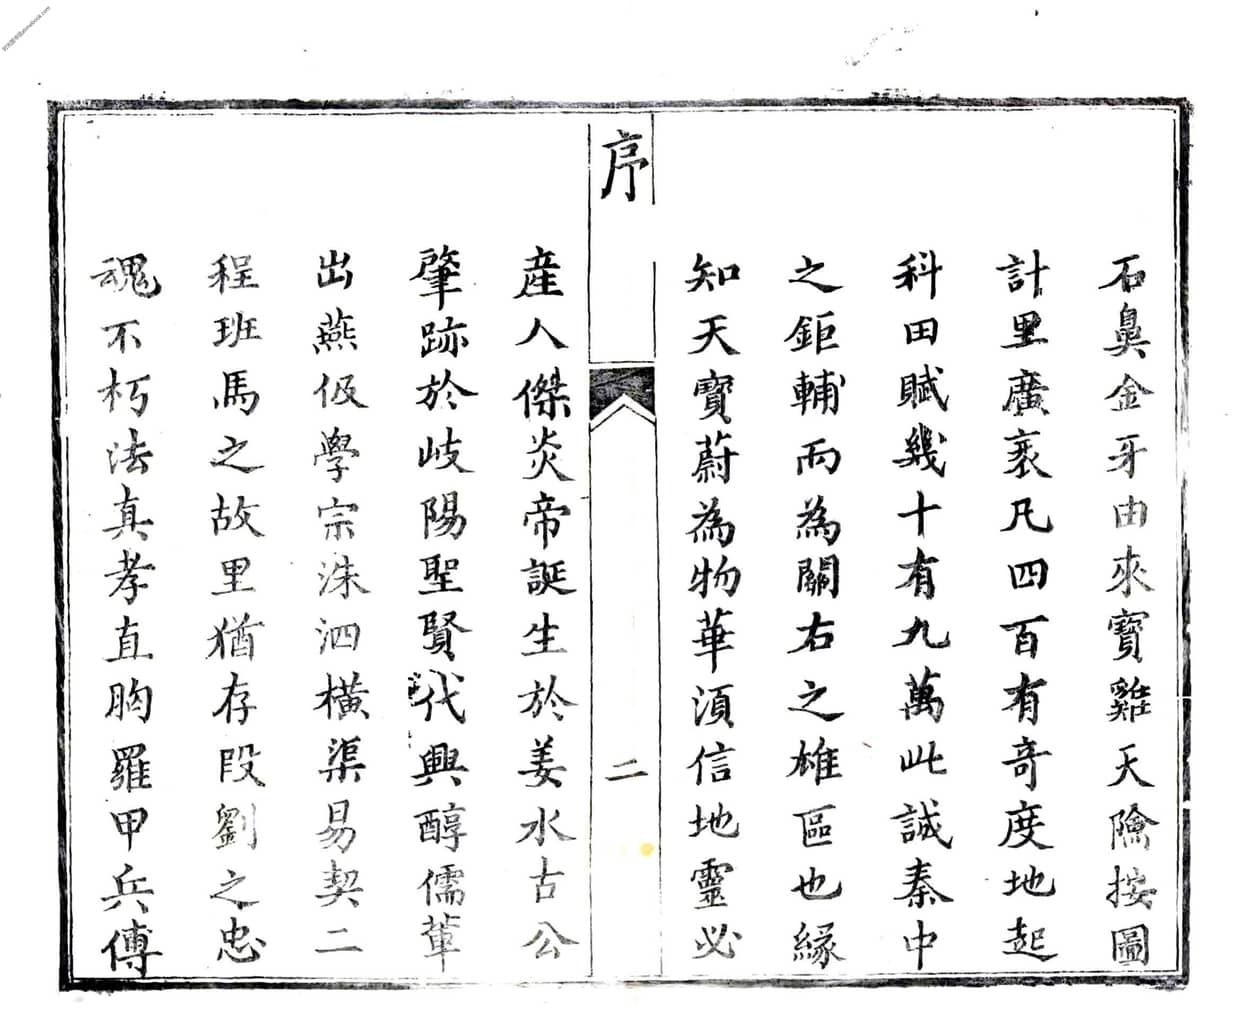 石鼻金牙由來寶雞天險按圖
計里廣袤凡四百有奇度地起
科田賦幾十有九萬此誠秦中
之鉅輔而為關右之雄區也緣
知天寶蔚為物華湏信地靈必
序
二
產人傑炎帝誕生於姜水古公
肇跡於岐陽聖賢代興醇儒輩
出燕伋學宗洙泗橫渠易契二
程班馬之故里猶存段劉之忠
魂不朽法真孝直胸羅甲兵傅